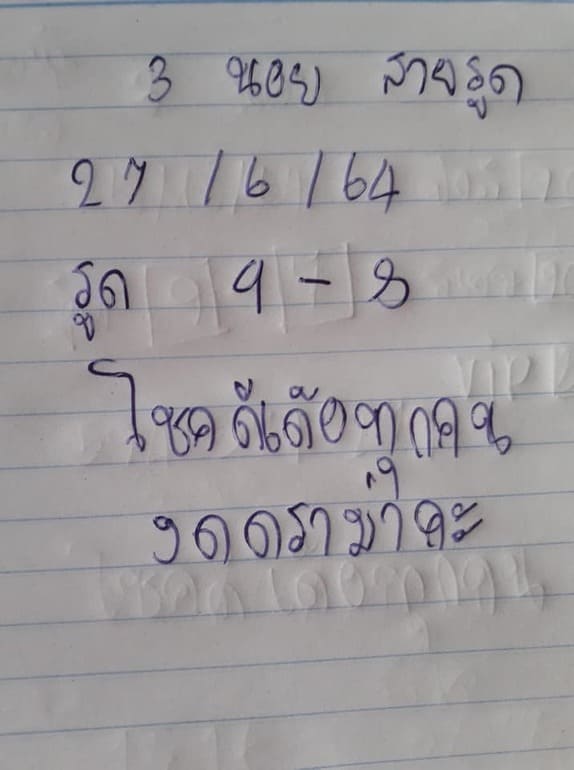 3 นอย สายรูด
27 / 6 / 64
รูด 9 - 8
โชคดีเด้อทุกคน
งดดราม่าคะ